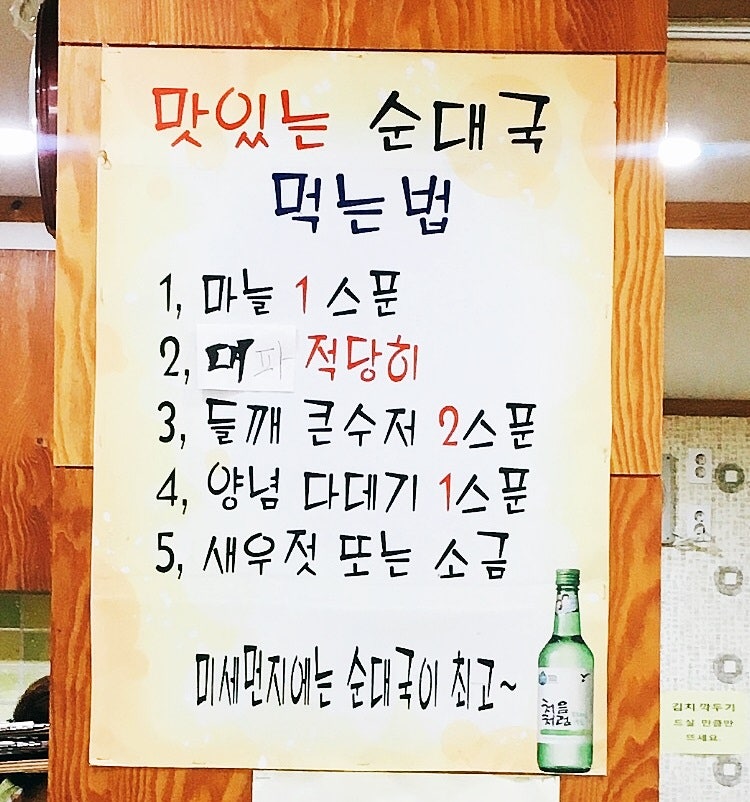 맛있는 순대국
먹는법
1, 마늘 1 스푼
2, 대파 적당히
3, 들깨 큰수저 2스푼
4, 양념 다데기 1스푼
5, 새우젓 또는 소금
미세먼지에는 순대국이 최고~
처음
처럼
김치 깍두기
드실 만큼만
뜨세요.